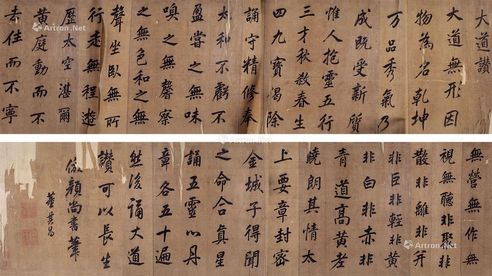 大道讚
大道無形因
物為名乾坤
万品秀氣乃
成既受新質
惟人抱靈五行
三才秋敘春生
四九寳偈除
誦守精修奉
太和不虧不
盈嘗之無味
嗅之無馨察
之無色和之無
聲坐臥無所
行走無程遊
歷太空湛爾
黄庭動而不
去住而不寧
無營無作無
視無聽非聚非
散非離非并
非巨非輕非黄
非白非赤非
青道高黄老
曉朗其情太
上要章封密
金城子得聞
之命合真星
誦五靈以丹
章各五十遍
然後誦大道
讚可以長生
倣顏尚書筆
董其昌
Artron.Net
Artron.Net
Artron.Net